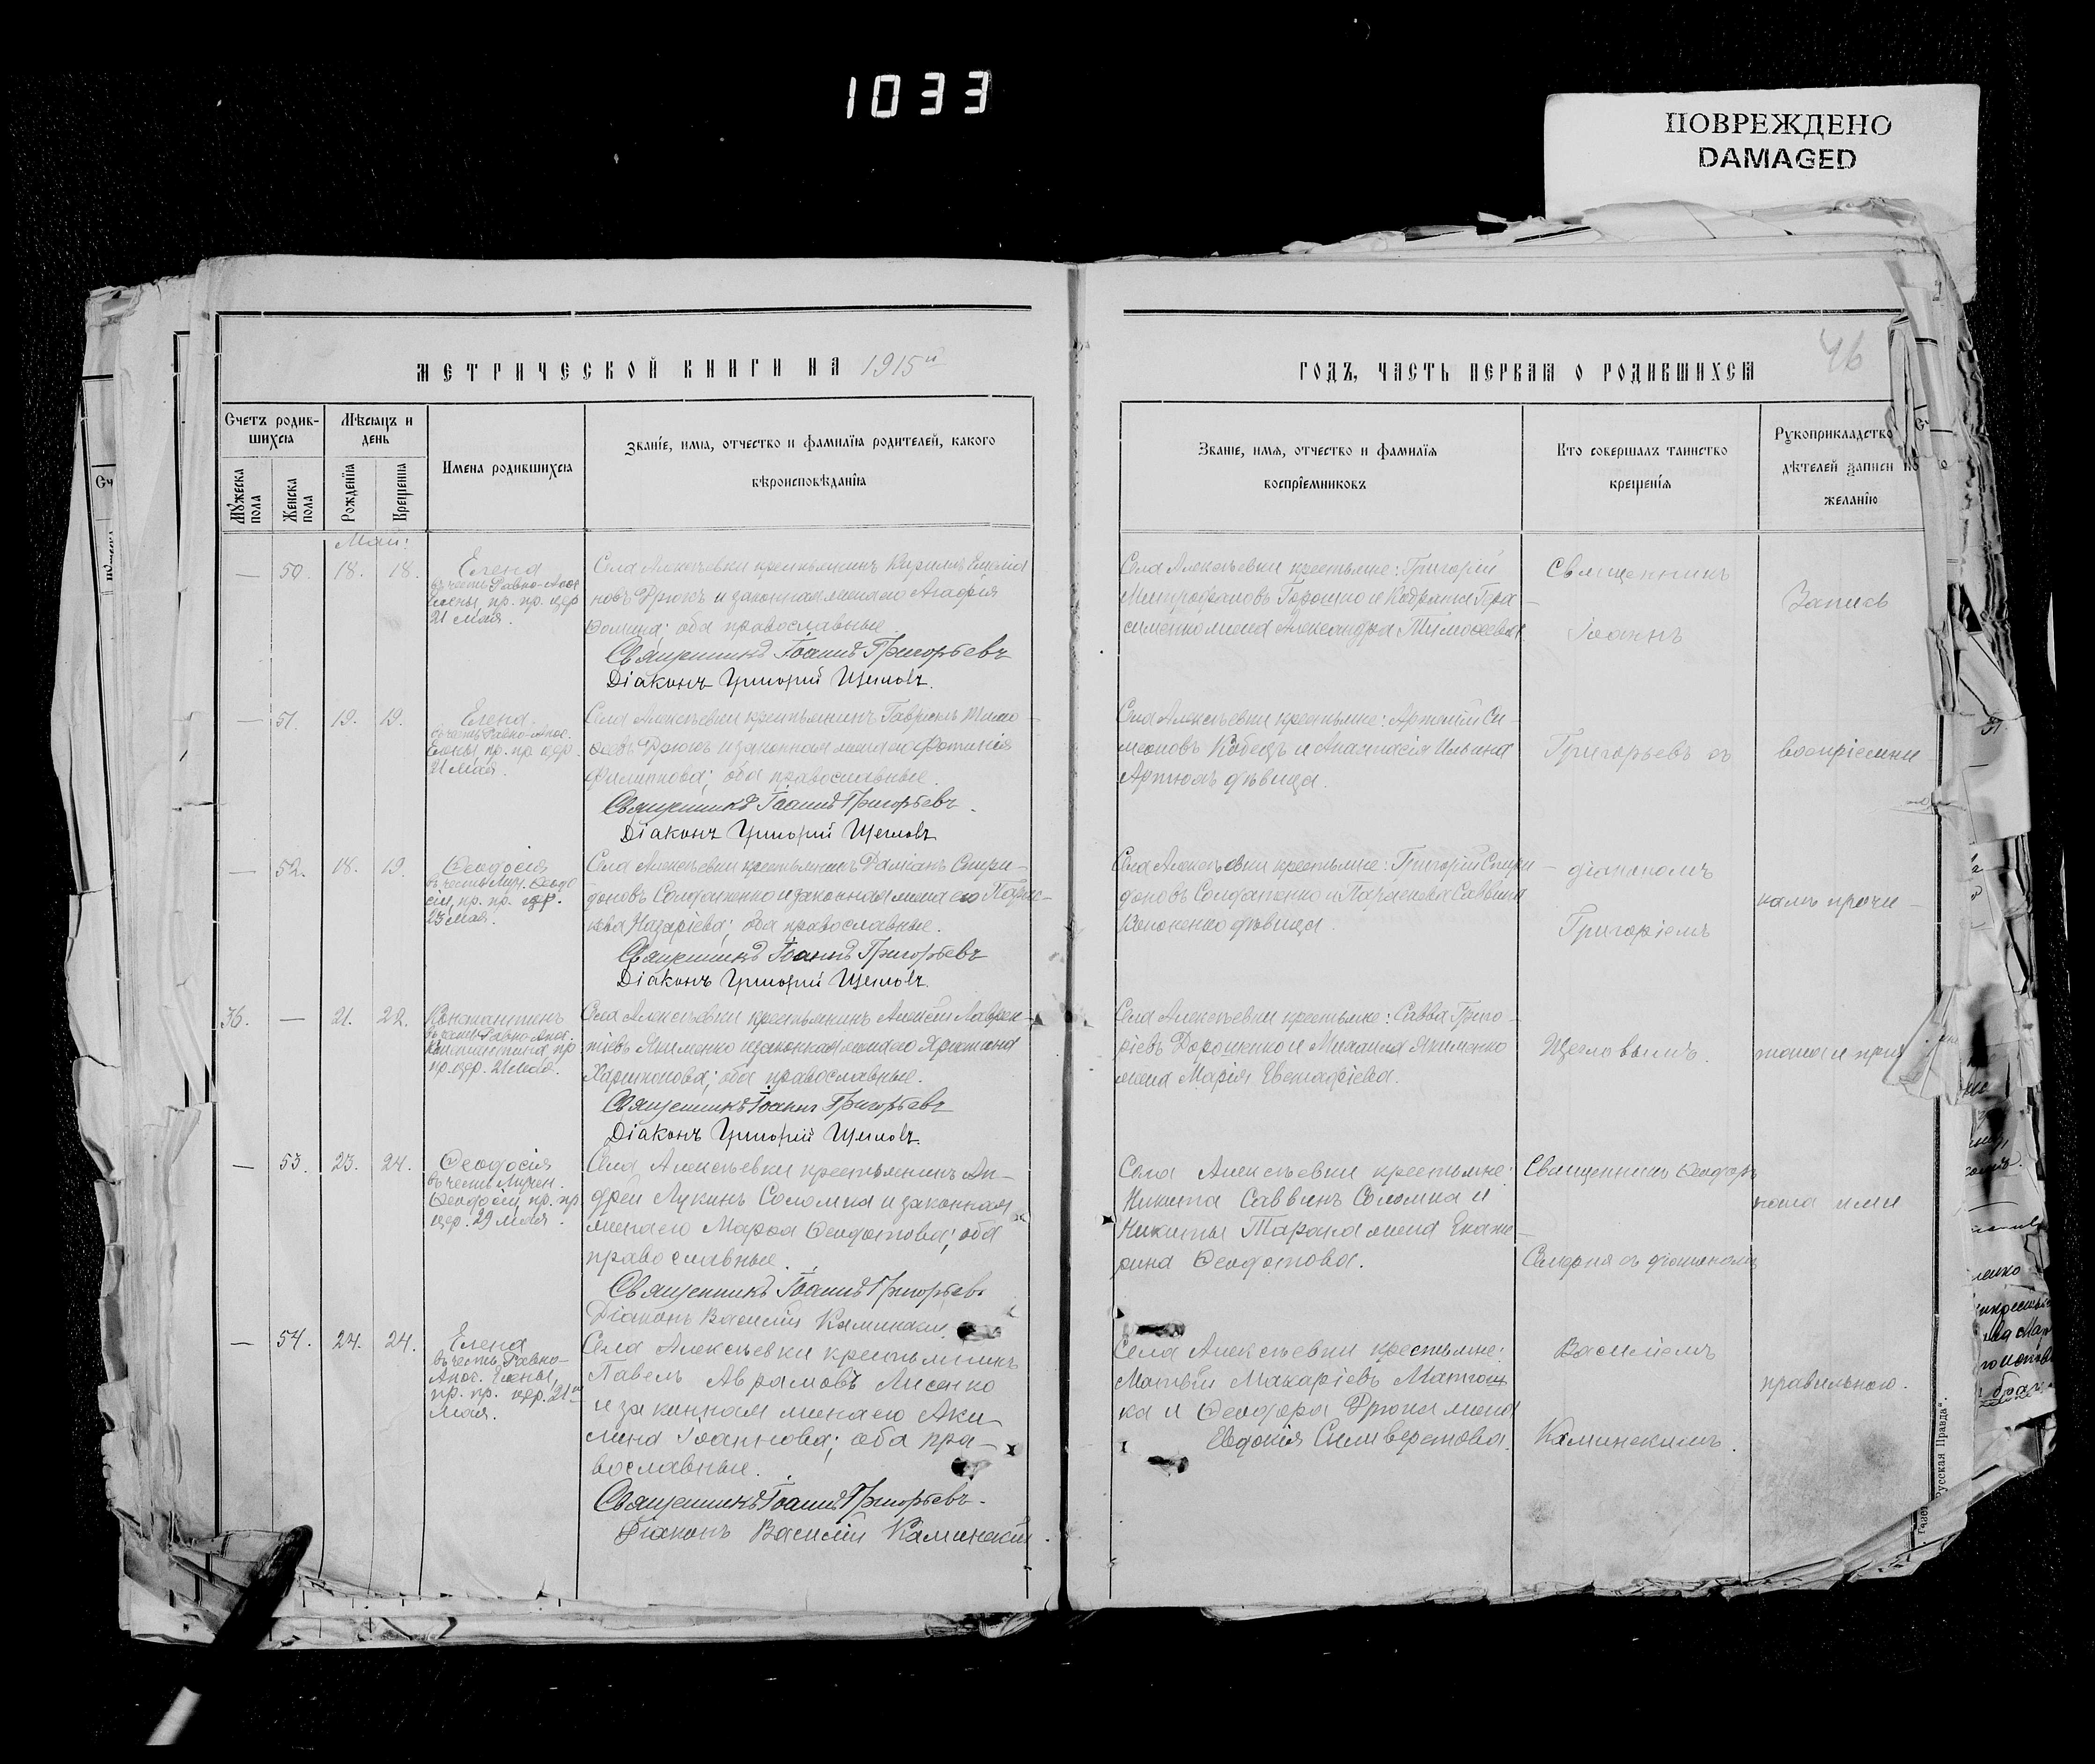 1033
ПОВРЕЖДЕНО
DAMAGED
46
МЕТРИЧЕСКОЙ КНИГИ НА 1915й
ГОДЪ, ЧАСТЬ ПЕРВАЯ О РОДИВШИХСЯ
Счетъ родив-
шихся
Мужеска пола
Женска пола
Мѣсяцъ и
день
Рожденїя
Крещенія
Имена родившихся
Званіе, имя, отчество и фамилїя родителей, какого
вѣроисповѣданїя
Званіе, имя, отчество и фамилїя
воспрїемниковъ
Кто совершалъ таинство
крещенїя
Рукоприкладство
дѣтелей записи по
желанїю
Май:
— 50. 18. 18.
Елена
въ честь Равно-Апос
Елены, пр. пр. цер
21 мая.
Села Алексѣевки крестьянинъ Кириллъ Емелiа
новъ Дрюкъ и законная жена его Агафія
Ѳомина; оба православные.
Священникъ Іоаннъ Григорьевъ
Діаконъ Григорій Щегловъ.
Села Алексѣевки крестьяне: Григорій
Митрофановъ Горошко и Кодрата Гера-
сименко жена Александра Тимоѳеева
— 51. 19. 19.
Елена.
въ честь Равно-Апос.
Елены, пр. пр. цер.
21 мая.
Села Алексѣевки крестьянинъ Гавріилъ Тимо-
ѳеевъ Дрюкъ и законная жена его Фотинія
Филиппова; оба православные.
Священникъ Іоаннъ Григорьевъ.
Діаконъ Григорій Щегловъ
Села Алексѣевки крестьяне: Артемій Си-
меоновъ Кобецъ и Анастасія Ильина
Артюхъ дѣвица.
— 52. 18. 19.
Ѳеодосія
въ честь Муч. Ѳеодо
сіи, пр. пр. цер.
23 мая.
Села Алексѣевки крестьянинъ Даміанъ Спири-
доновъ Солдатенко и законная жена его Парас-
кева Назаріева; оба православные.
Священникъ Іоаннъ Григорьевъ
Діаконъ Григорій Щегловъ.
Села Алексѣевки крестьяне: Григорій Спири-
доновъ Солдатенко и Параскева Саввина
дѣвица.
36. — 21. 22.
Константинъ
въ честь Равно-Апос.
Константина, пр
пр. цер. 21 мая.
Села Алексѣевки крестьянинъ Алексій Лаврен-
тіевъ Якименко и законная жена его Христина
Харитонова; оба православные.
Священникъ Іоаннъ Григорьевъ
Діаконъ Григорій Щегловъ.
Села Алексѣевки крестьяне: Савва Григо-
ріевъ Дорошенко и Михаила Якименко
жена Марія Евстафіева.
— 53. 23. 24.
Ѳеодосія
въ честь Мучен.
Ѳеодосіи, пр. пр
цер. 29 мая.
Села Алексѣевки крестьянинъ Ан-
дрей Лукинъ Соломка и законная
жена его Марѳа Ѳеодотова; оба
православные.
Священникъ Іоаннъ Григорьевъ
Діаконъ Василій Каминскій
Села Алексѣевки крестьяне:
Никита Саввинъ Соломка и
Никиты Тарана жена Екате-
рина Ѳеодотова.
— 54. 24. 24.
Елена
въ честь Равно-
Апос. Елены,
пр. пр. цер. 21го
мая.
Села Алексѣевки крестьянинъ
Павелъ Аврамовъ Лисенко
и законная жена его Аки-
лина Іоаннова; оба пра-
вославные.
Священникъ Іоаннъ Григорьевъ.
Діаконъ Василій Каминскій.
Села Алексѣевки крестьяне:
Матвій Макаріевъ
ка и Ѳеодора Дрюка жена
Евдокія Сильверстова.
Священникъ
Іоаннъ
Григорьевъ съ
діакономъ
Григоріемъ
Щегловымъ.
Священникъ Ѳеодоръ
съ діакономъ
Василіемъ
Каминскимъ.
Запись
воспріемни-
камъ прочи-
тана и приз
нана ими
правильною.
Русская Правда".